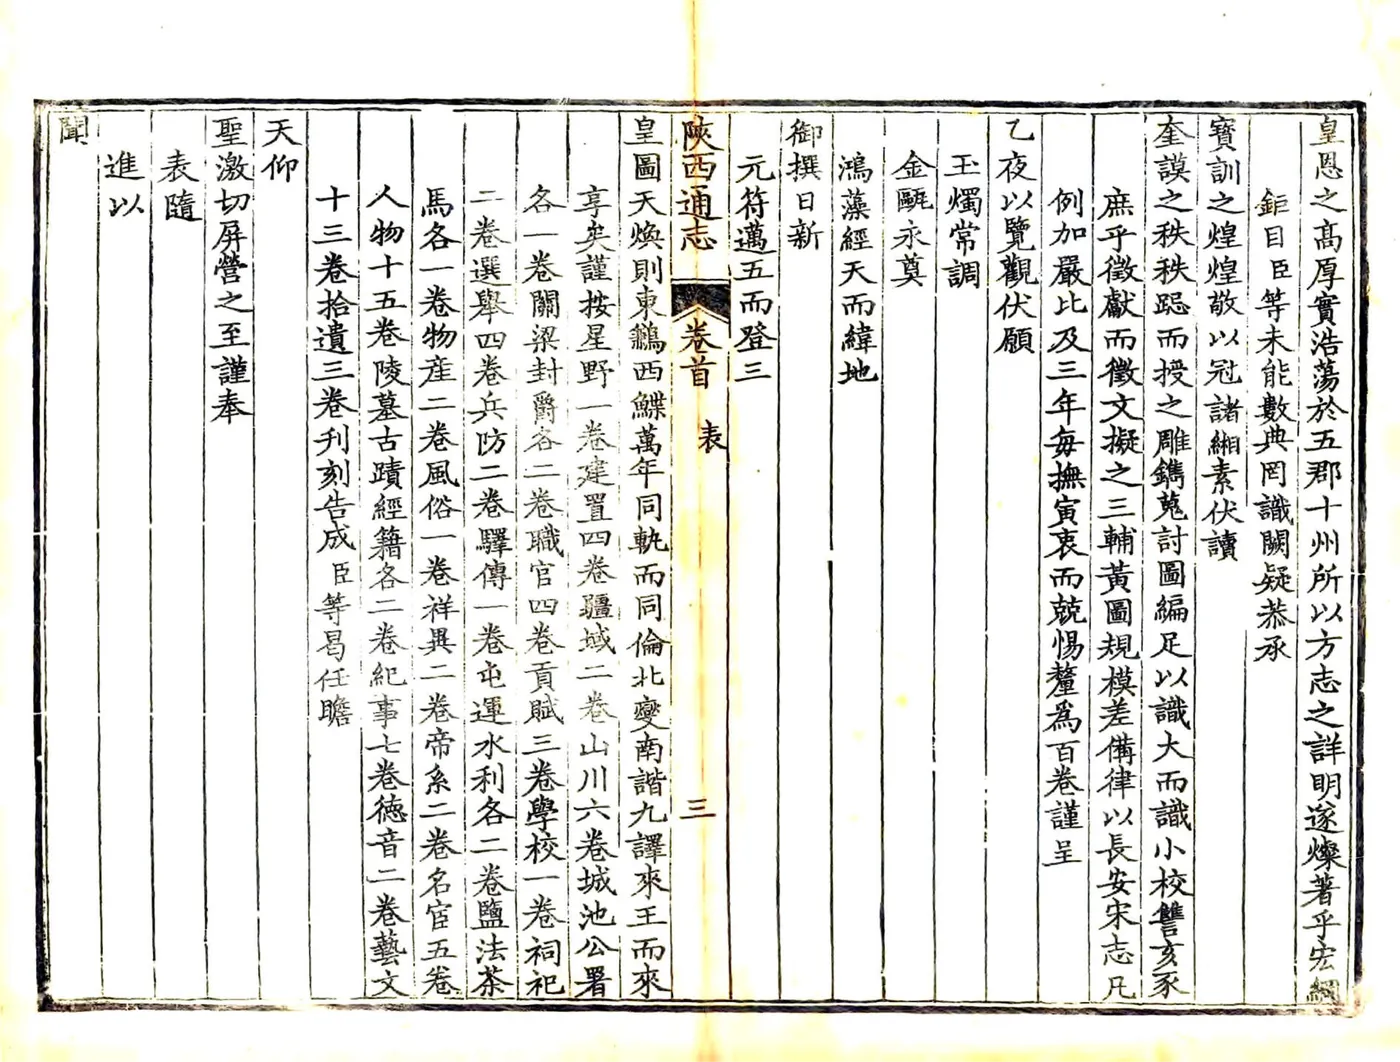 皇恩之高厚實浩蕩於五郡十州所以方志之詳明遂燦著乎宏綱
鉅目臣等未能數典罔識闕疑恭承
寶訓之煌煌敬以冠諸緗素伏讀
奎謨之秩秩跽而授之雕鐫蒐討圖編足以識大而識小校讐亥豕
庶乎徵獻而徵文擬之三輔黃圖規模差備律以長安宋志凡
例加嚴比及三年每撫寅衷而兢惕釐爲百卷謹呈
乙夜以覽觀伏願
玉燭常調
金甌永奠
鴻藻經天而緯地
御撰日新
元符邁五而登三
陝西通志
卷首
表
三
皇圖天煥則東鶼西鰈萬年同軌而同倫北變南諧九譯來王而來
享矣謹按星野一卷建置四卷疆域二卷山川六卷城池公署
各一卷關梁封爵各二卷職官四卷貢賦三卷學校一卷祠祀
二卷選舉四卷兵防二卷驛傳一卷屯運水利各二卷鹽法茶
馬各一卷物産二卷風俗一卷祥異二卷帝系二卷名宦五卷
人物十五卷陵墓古蹟經籍各二卷紀事七卷德音二卷藝文
十三卷拾遺三卷刋刻告成臣等曷任瞻
天仰
聖激切屏營之至謹奉
表隨
進以
聞